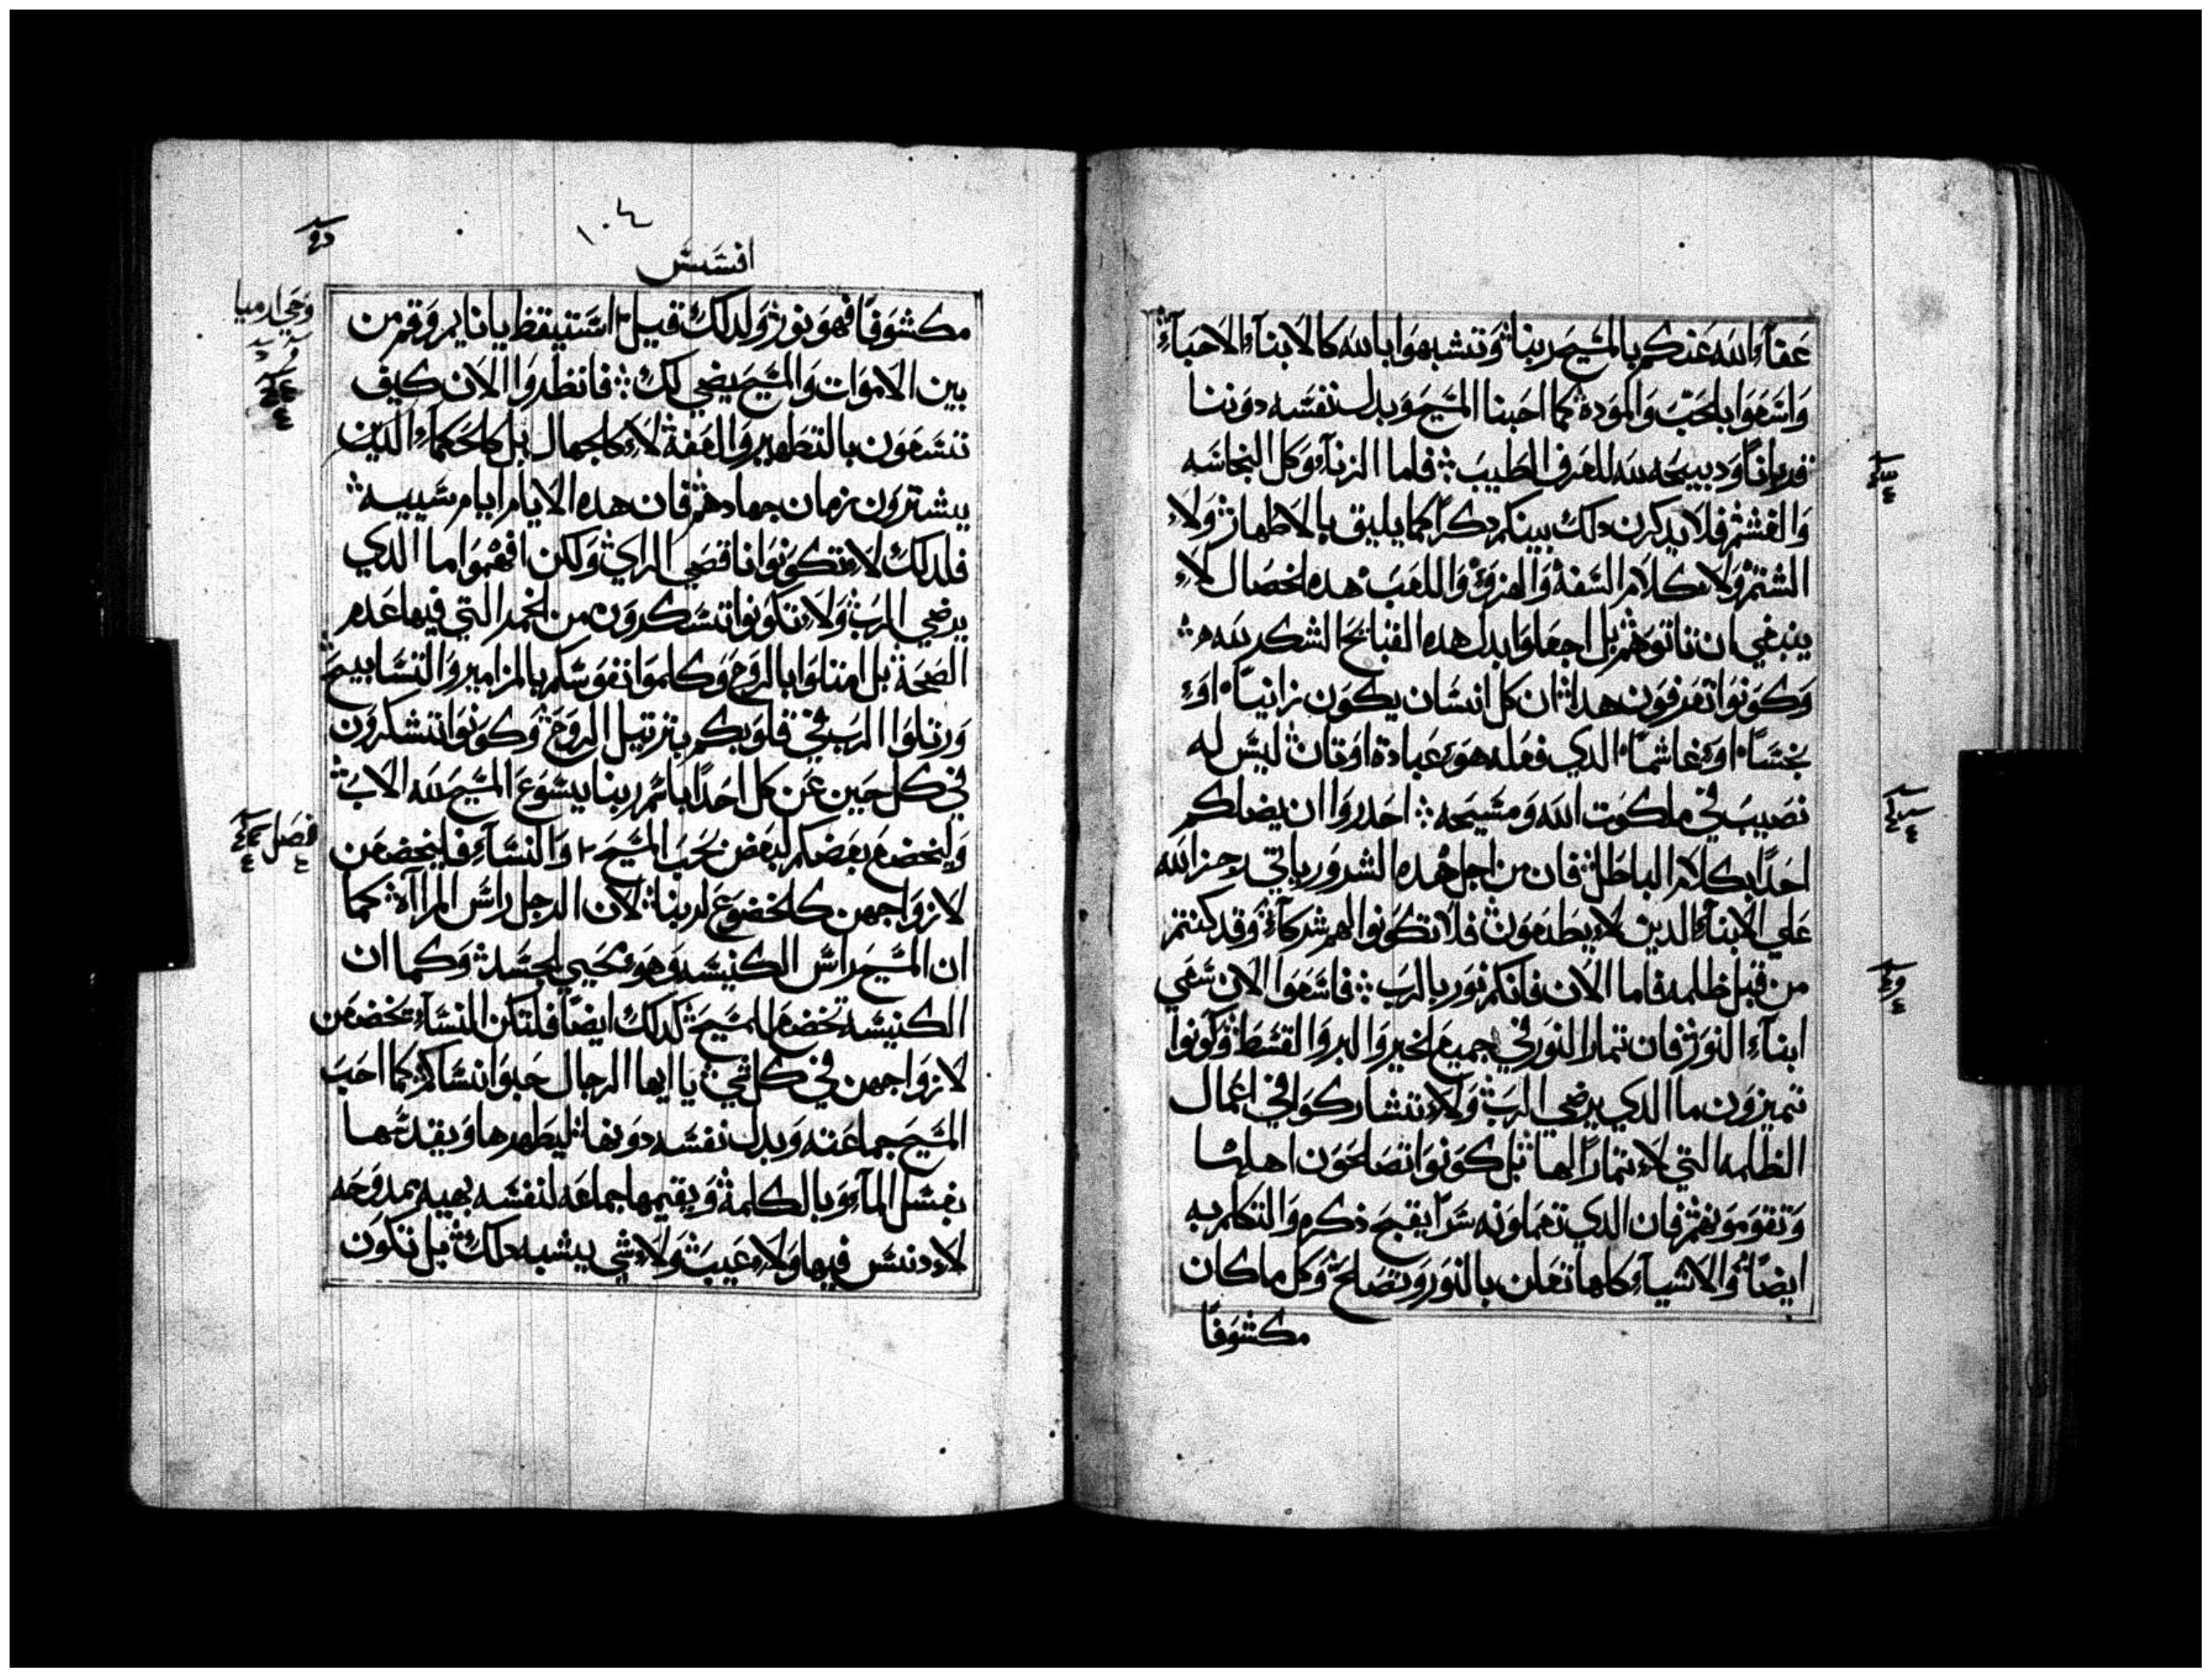 عفاء الله عنكم بالمسيح ربنا وتشبهوا بالله كالابناء الاحباء
واسعوا بالحب والموده كما احبنا المسيح وبدل نفسه دوننا
قربانا ودبيحه لله للعرف الطيب فاما الزناء وكل النجاسه
والغشم فلا يدكرن دلك بينكم دكرا كما يليق بالاطهار ولا
الشتم ولا كلام السفه والهزو واللعب هده الخصال لا
ينبغي ان تاتوهم بل اجعلوا بدل هده القبايح الشكر لله
وكونوا تعرفون هدا ان كل انسان يكون زانيا او
نجسا او غاشما الدي فعله هو عبادة اوتان ليس له
نصيب في ملكوت الله ومسيحه احدروا ان يضلكم
احدا بكلام الباطل فان من اجل هده الشرور ياتي رجز الله
علي الابناء الدين لا يطيعون فلا تكونوا لهم شركاء وقد كنتم
من قبل ظلمه فاما الان فانكم نور بالرب فاسعوا الان سعي
ابناء النور فان تمار النور في جميع الخير والبر والقسط وكونوا
تميزون ما الدي يرضي الرب ولا تتشاركوا في اعمال
الظلمه التي لا تمارا لها بل كونوا تصلحون اهلها
وتقوموهم فان الدي تعملونه سرا يقبح ذكره والتكلم به
ايضا والاشياء كلها تعلن بالنور وتصلح وكل ما كان
مكشوفا
١٠٤
افسس
مكشوفا فهو نور ولدلك قيل استيقظ يا نايم وقم من
بين الاموات والمسيح يضي لك فانظروا الان كيف
تسعون بالتطهير والعفه لا كالجهال بل كالحكماء الدين
يشترون زمان جهادهم فان هده الايام ايام سييه
فلدلك لا تكونوا ناقصي الراي ولكن افهموا ما الدي
يرضي الرب ولا تكونوا تسكرون من الخمر التي فيها عدم
الصحه بل امتلوا بالروح وكلموا نفوسكم بالمزامير والتسابيح
ورتلوا للرب في قلوبكم بترتيل الروح وكونوا تشكرون
في كل حين عن كل احدا باسم ربنا يسوع المسيح لله الاب
وليخضع بعضكم لبعض بحب المسيح والنساء فليخضعن
لازواجهن كالخضوع لربنا لان الرجل راس المراه كما
ان المسيح راس الكنيسه وهو محيي الجسد وكما ان
الكنيسه تخضع للمسيح كدلك ايضا فلتكن النساء تخضعن
لازواجهن في كل شي يا ايها الرجال حبوا نساكم كما احب
المسيح جماعته وبدل نفسه دونها ليطهرها ويقدسها
بغسل الماء وبالكلمه ويقيمها جماعه لنفسه بهيه ممدوحه
لا دنس فيها ولا عيب ولا شي يشبه دلك بل تكون
وحي ارميا
فصل